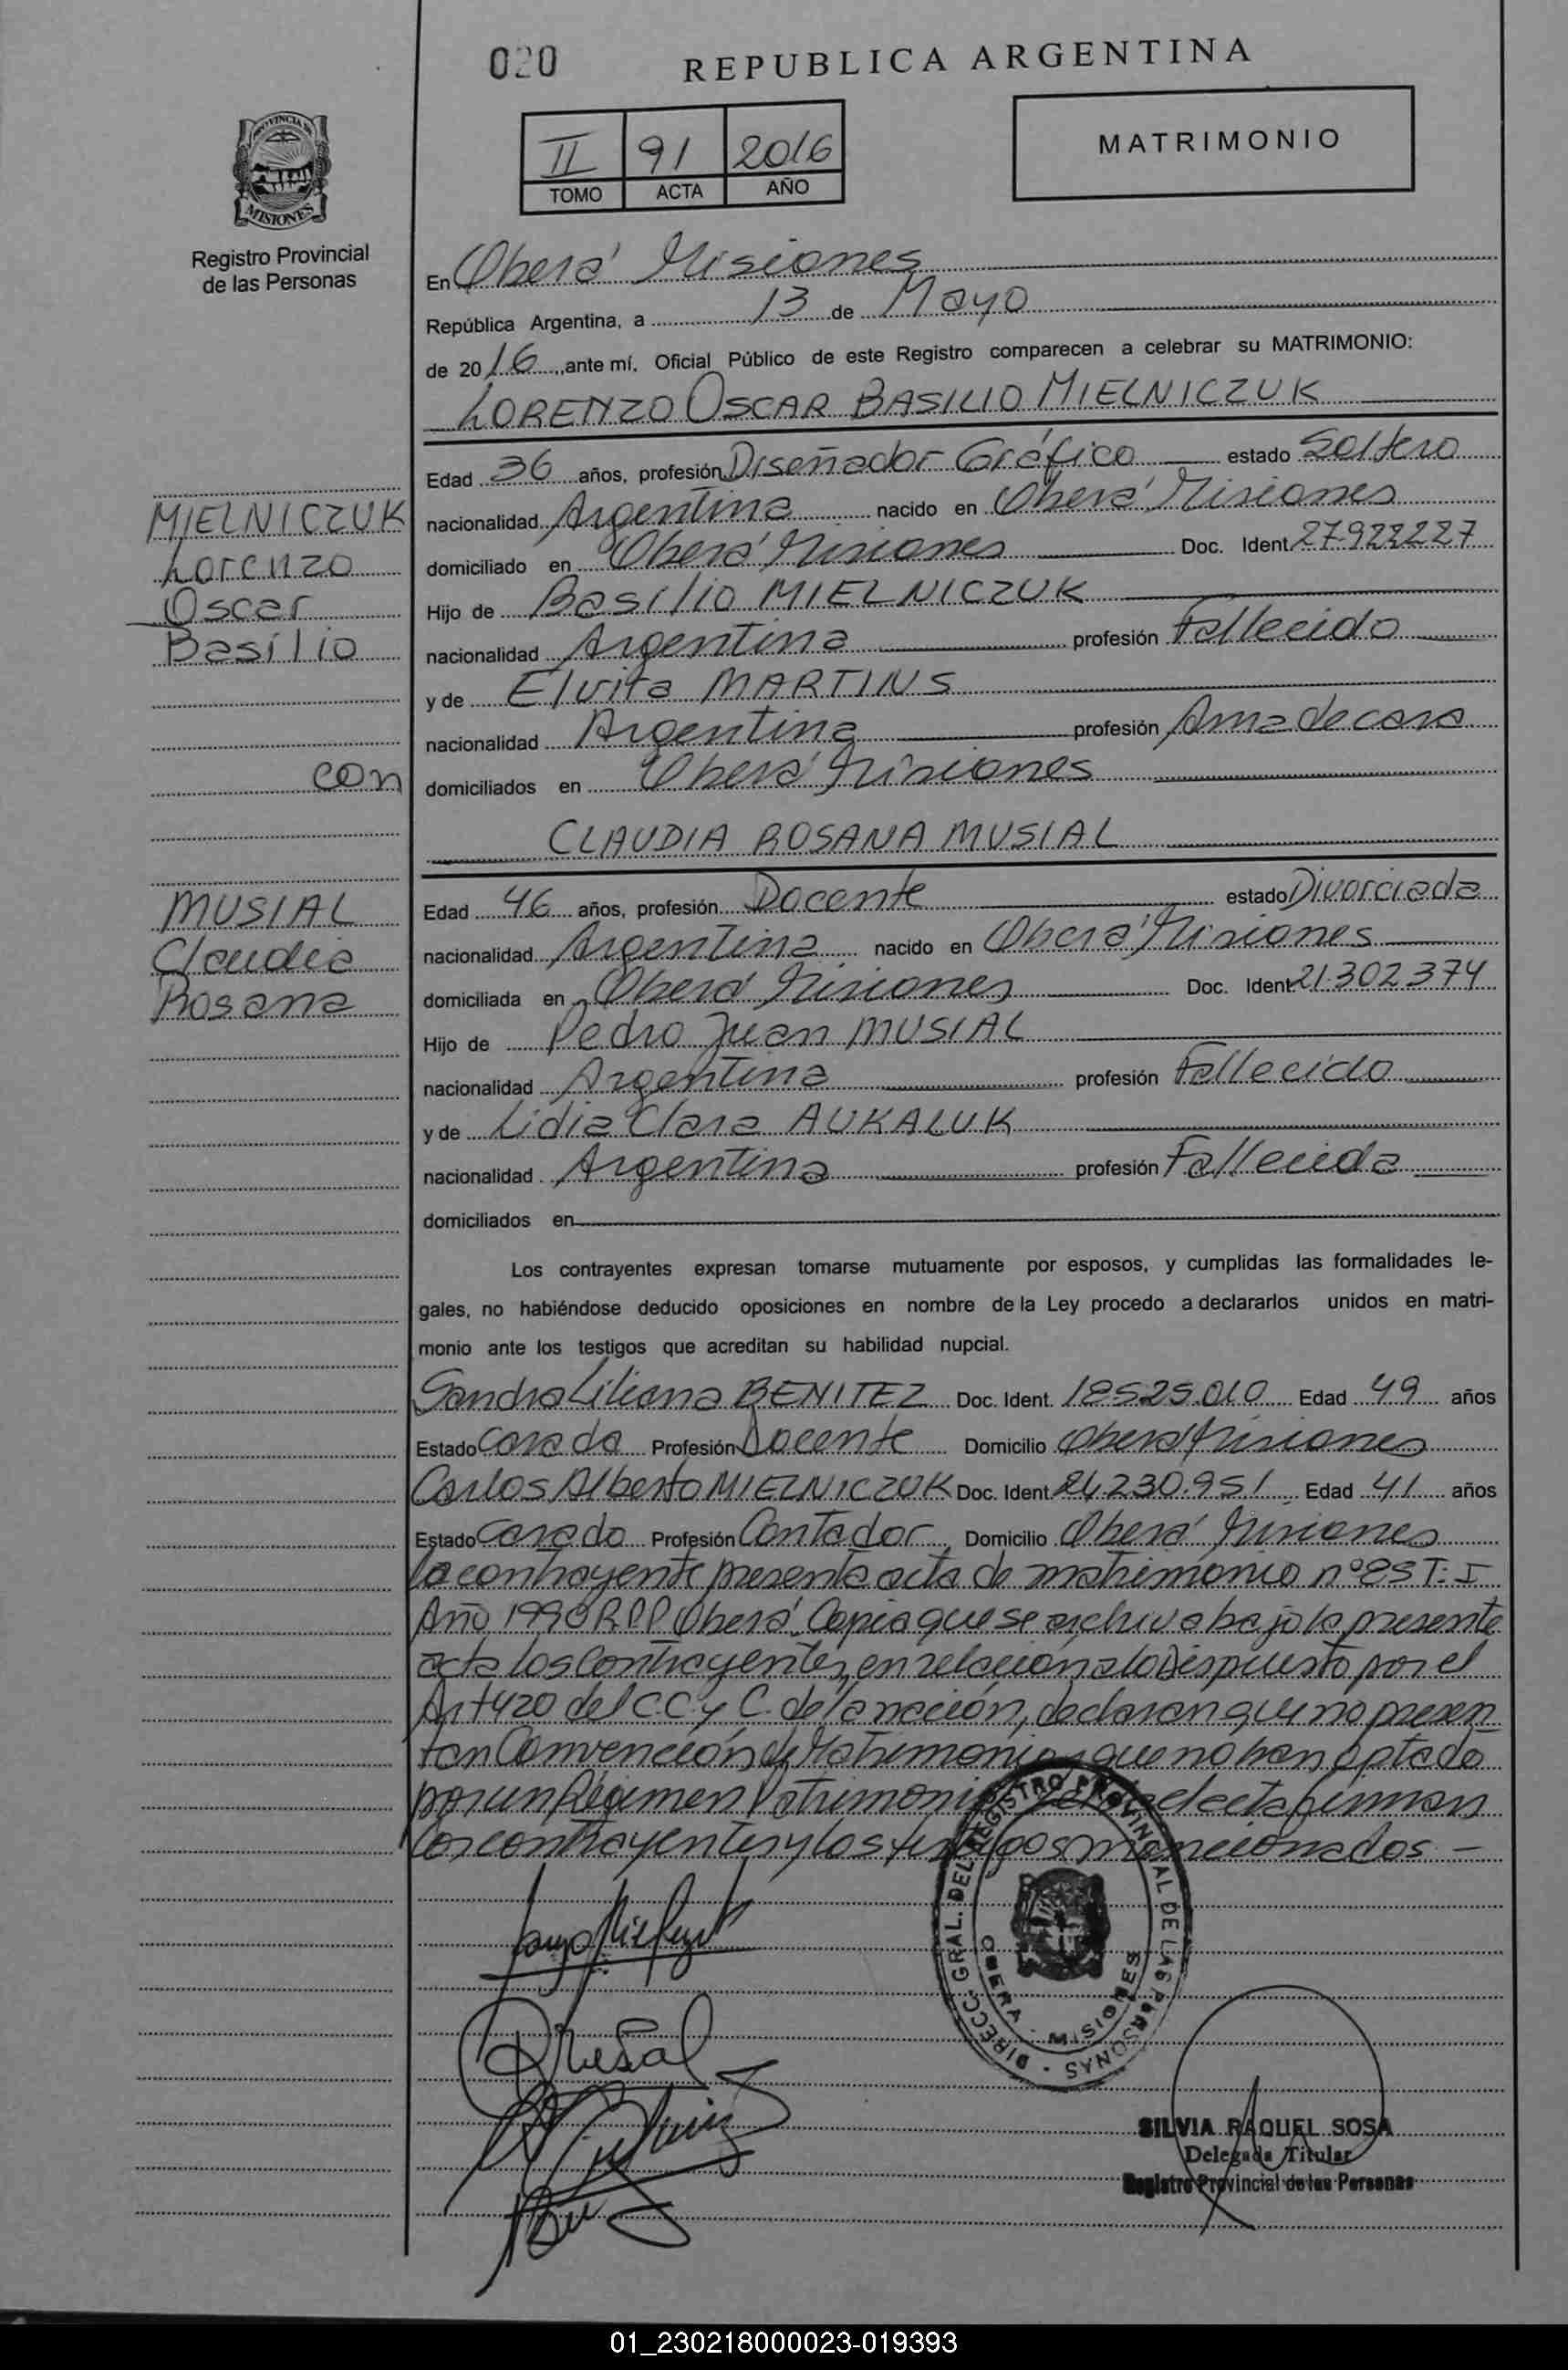 020
REPUBLICA ARGENTINA
II 91 2016
TOMO ACTA AÑO
MATRIMONIO
PROVINCIA DE
MISIONES
Registro Provincial
de las Personas
En Oberá Misiones
República Argentina, a 13 de Mayo
de 2016, ante mí. Oficial Público de este Registro comparecen a celebrar su MATRIMONIO:
LORENZO OSCAR BASILIO MIELNICZUK
Edad 36 años, profesión Diseñador Gráfico estado Soltero
MIELNICZUK
Lorenzo
Oscar
Basilio
nacionalidad Argentina nacido en Oberá Misiones
domiciliado en Oberá Misiones Doc. Ident. 27.922227
Hijo de Basilio MIELNICZUK
nacionalidad Argentina profesión Fallecido
y de Elvira MARTINS
nacionalidad Argentina profesión Ama de casa
con
domiciliados en Oberá Misiones
CLAUDIA ROSANA MUSIAL
MUSIAL
Claudia
Rosana
Edad 46 años, profesión Docente estado Divorciada
nacionalidad Argentina nacido en Oberá Misiones
domiciliada en Oberá Misiones Doc. Ident. 21.302374
Hijo de Pedro Juan MUSIAL
nacionalidad Argentina profesión Fallecido
y de Lidia Clara AUKALUK
nacionalidad Argentina profesión Fallecida
domiciliados en
Los contrayentes expresan tomarse mutuamente por esposos, y cumplidas las formalidades le-
gales, no habiéndose deducido oposiciones en nombre de la Ley procedo a declararlos unidos en matri-
monio ante los testigos que acreditan su habilidad nupcial.
Sandra Liliana BENITEZ Doc. Ident. 18.525.010 Edad 49 años
Estado Casada Profesión Docente Domicilio Oberá Misiones
Carlos Alberto MIELNICZUK Doc. Ident 24.230.951 Edad 41 años
Estado Casado Profesión Contador Domicilio Oberá Misiones
la contrayente presenta acta de matrimonio nº 85 T: I
Año 1990 RPP Oberá. Copia que se archiva bajo la presente
acta los Contrayentes, en relación a lo Dispuesto por el
Art 420 del C.C. y C. de la nación, declaran que no presen
tan Convención de Matrimonio y que no han optado
por un Régimen Patrimonial el acta firman
los contrayentes y los testigos mencionados. -
DIRECC. GRAL. DEL REGISTRO PROVINCIAL DE LAS PERSONAS
OBERA - MISIONES
SILVIA RAQUEL SOSA
Delegada Titular
Registro Provincial de las Personas
01_230218000023-019393